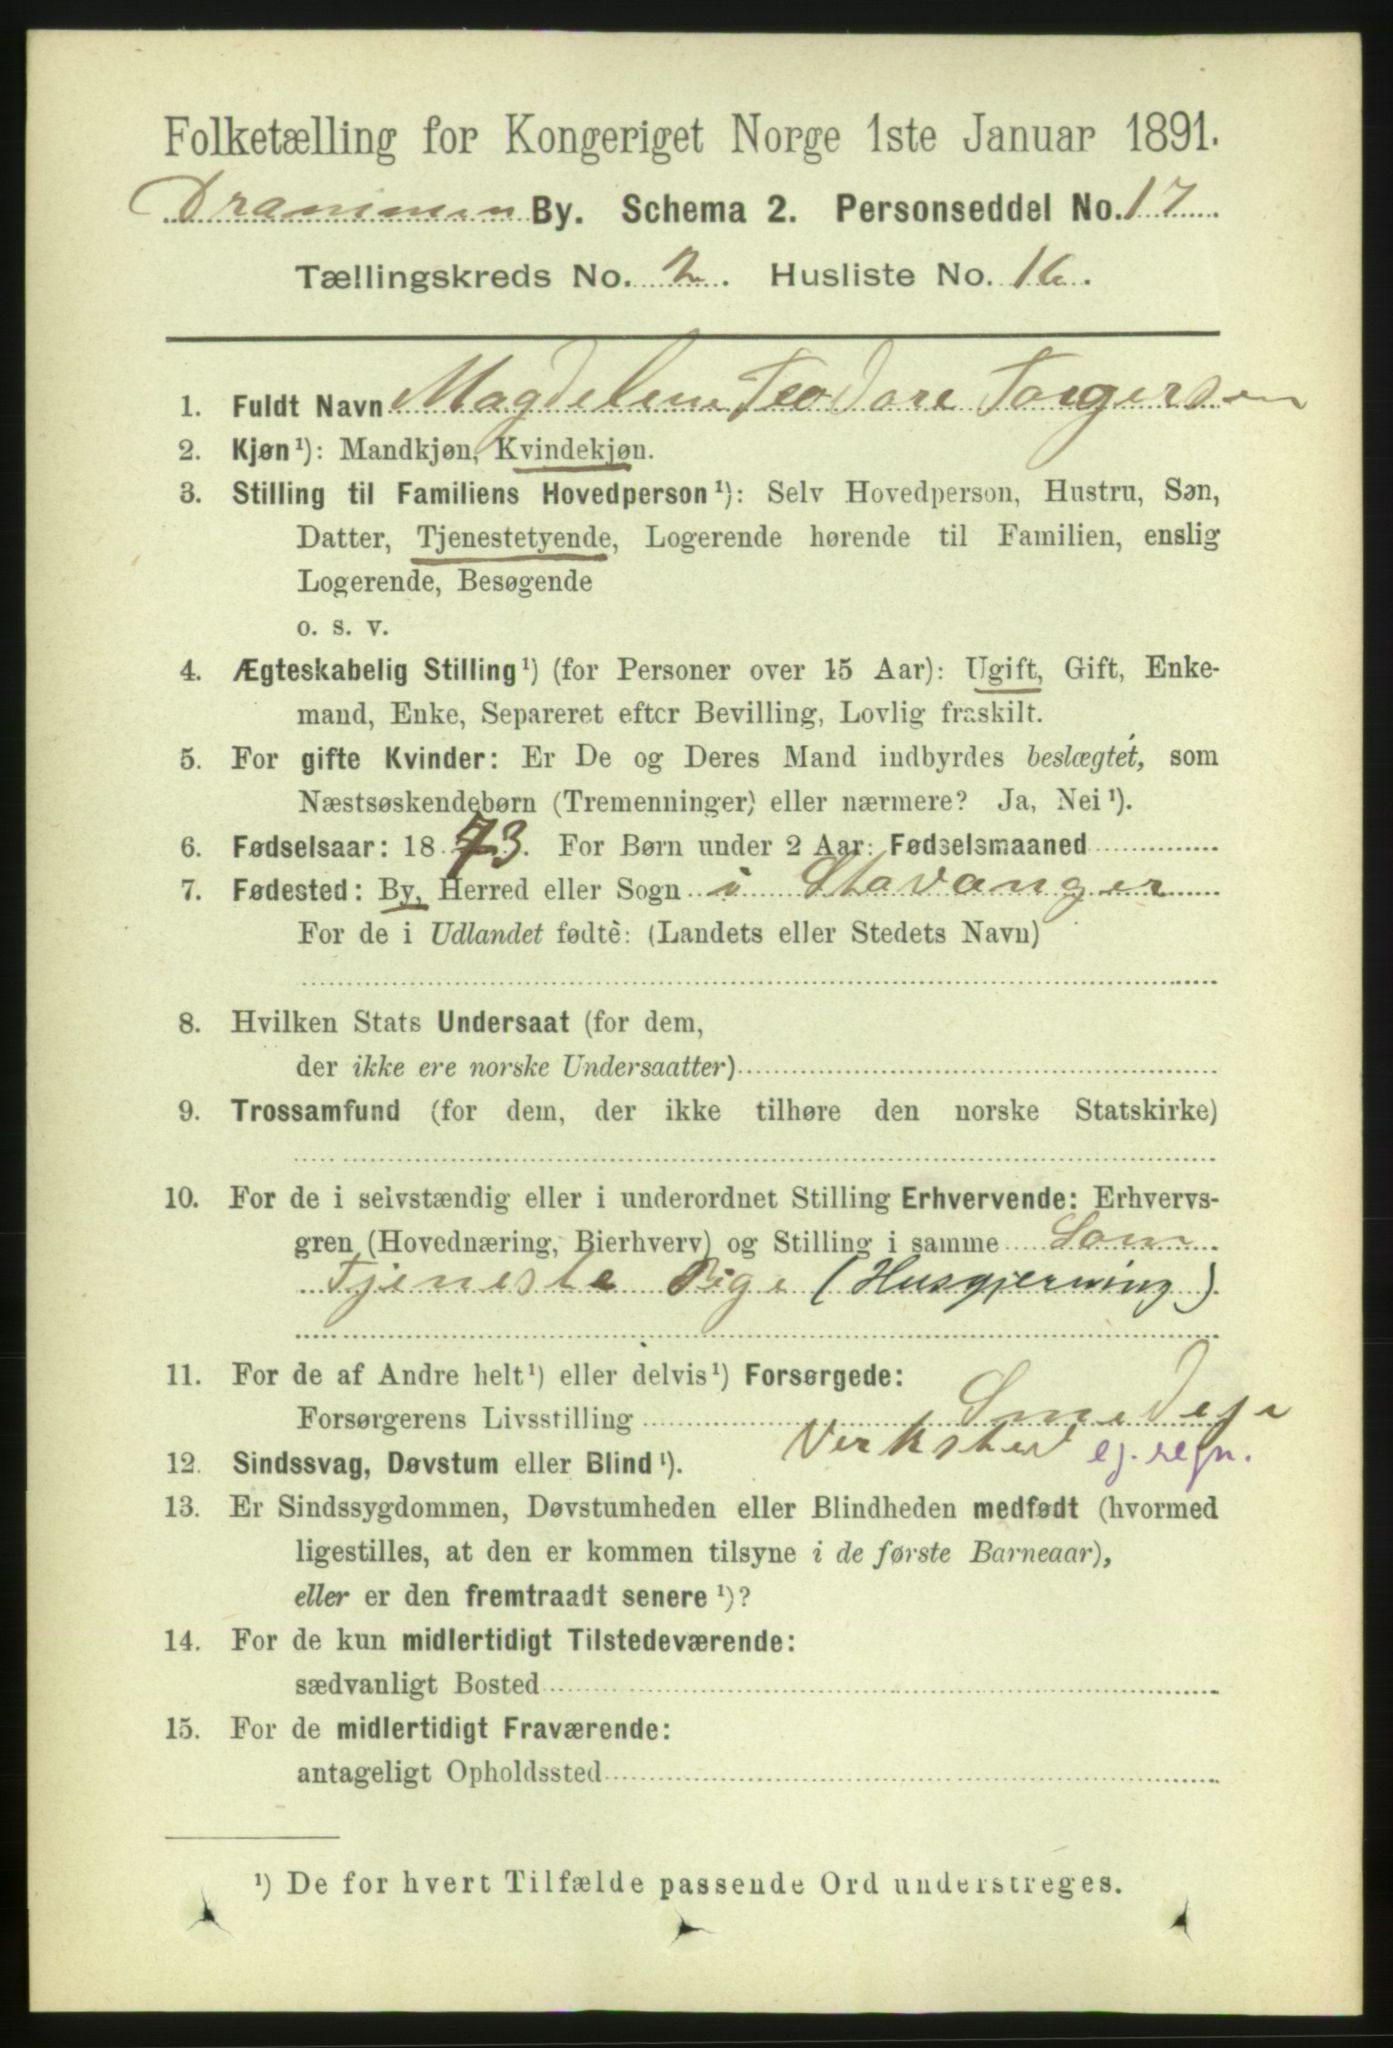 Folketælling for Kongeriget Norge 1ste Januar 1891.
Drammen By. Schema 2. Personseddel No. 17
Tællingskreds No. 2. Husliste No. 16.
1. Fuldt Navn Magdelene Teodore Torgersen
2. Kjøn¹): Mandkjøn, Kvindekjøn.
3. Stilling til Familiens Hovedperson¹): Selv Hovedperson, Hustru, Søn,
Datter, Tjenestetyende, Logerende hørende til Familien, enslig
Logerende, Besøgende
o. s. v.
4. Ægteskabelig Stilling¹) (for Personer over 15 Aar): Ugift, Gift, Enke-
mand, Enke, Separeret efter Bevilling, Lovlig fraskilt.
5. For gifte Kvinder: Er De og Deres Mand indbyrdes beslægtet, som
Næstsøskendebørn (Tremenninger) eller nærmere? Ja, Nei¹).
6. Fødselsaar: 1873. For Børn under 2 Aar: Fødselsmaaned
7. Fødested: By, Herred eller Sogn i Stavanger
For de i Udlandet fødtè: (Landets eller Stedets Navn)
8. Hvilken Stats Undersaat (for dem,
der ikke ere norske Undersaatter)
9. Trossamfund (for dem, der ikke tilhøre den norske Statskirke)
10. For de i selvstændig eller i underordnet Stilling Erhvervende: Erhvervs-
gren (Hovednæring, Bierhverv) og Stilling i samme Som
Tjeneste Pige (Husgjerning)
11. For de af Andre helt¹) eller delvis¹) Forsørgede:
Forsørgerens Livsstilling Smedeje
Verksted ej. regn.
12. Sindssvag, Døvstum eller Blind¹).
13. Er Sindssygdommen, Døvstumheden eller Blindheden medfødt (hvormed
ligestilles, at den er kommen tilsyne i de første Barneaar),
eller er den fremtraadt senere¹)?
14. For de kun midlertidigt Tilstedeværende:
sædvanligt Bosted
15. For de midlertidigt Fraværende:
antageligt Opholdssted
¹) De for hvert Tilfælde passende Ord understreges.